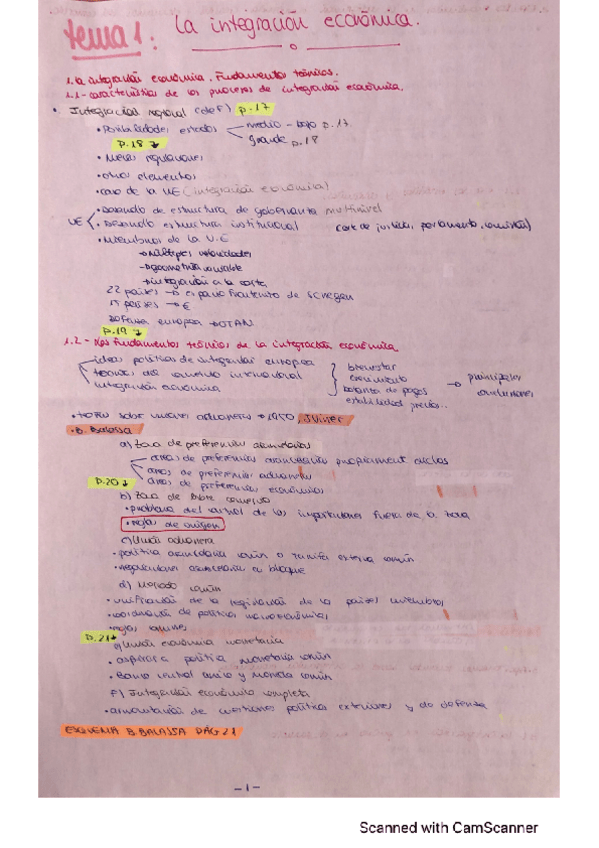 tema 1: La integración económica.
1. la integración económica. Fundamentos teóricos.
1.1 - características de los procesos de integración económica.
• Integración regional (def) p.17
• Posibilidades estados medio - bajo p.17
grande p.18
p.18
• Meras regulaciones
• otros elementos
• caso de la UE (integración económica)
• Desarrollo de estructura de gobernanza multinivel
UE • Desarrollo estructura institucional (corte de justicia, parlamento, comisión)
• Miembros de la U.E
→ múltiples velocidades
→ geometría variable
→ integración a la carta
22 países → espacio fronterizo de Schegen
países → €
Defensa europea → OTAN
p.19
1.2 - los fundamentos teóricos de la integración económica
ideas políticas de integrar europea
teorías del comercio internacional
integración económica
bienestar
crecimiento
balanza de pagos
estabilidad precios..
→ principales
• teoría sobre uniones aduaneras → 1950, J.Viner
• B. Balassa
a) zona de preferencias arancelarias
áreas de preferencias arancelarias propiament
áreas de preferencias aduaneras
p.20 áreas de preferencias económicas
b) zona de libre comercio
• problema del control de las importaciones fuera de la zona
• reglas de origen
c) Unión aduanera
• política arancelaria común o tarifa externa común
• negociaciones arancelarias en bloque
d) Mercado común
• unificación de la legislación de los países miembros
• coordinación de políticas macroeconómicas
• reglas comunes
p.21 e) Unión económica monetaria
• aspecto política monetaria común
• Banco central único y moneda común
f) Integración económica completa
• armonización de cuestiones política exteriores y de defensa
ESQUEMA B. BALASSA PÁG 21
- 1 -
Scanned with CamScanner